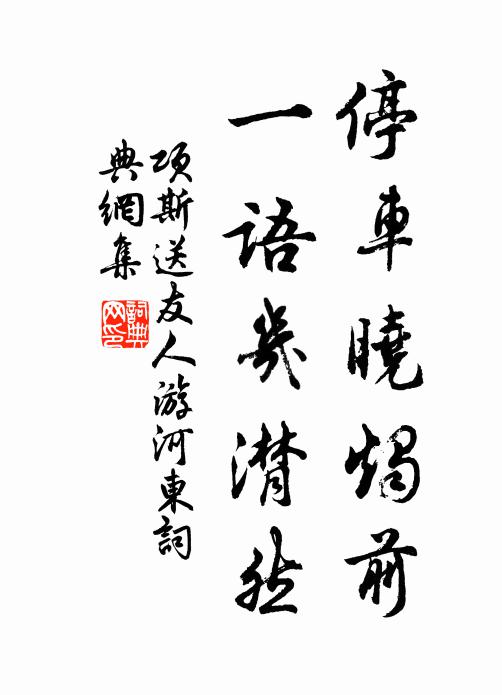 停車曉燭前
一語幾潸然
項斯送友人游河東詞
典網集
詞典
网印